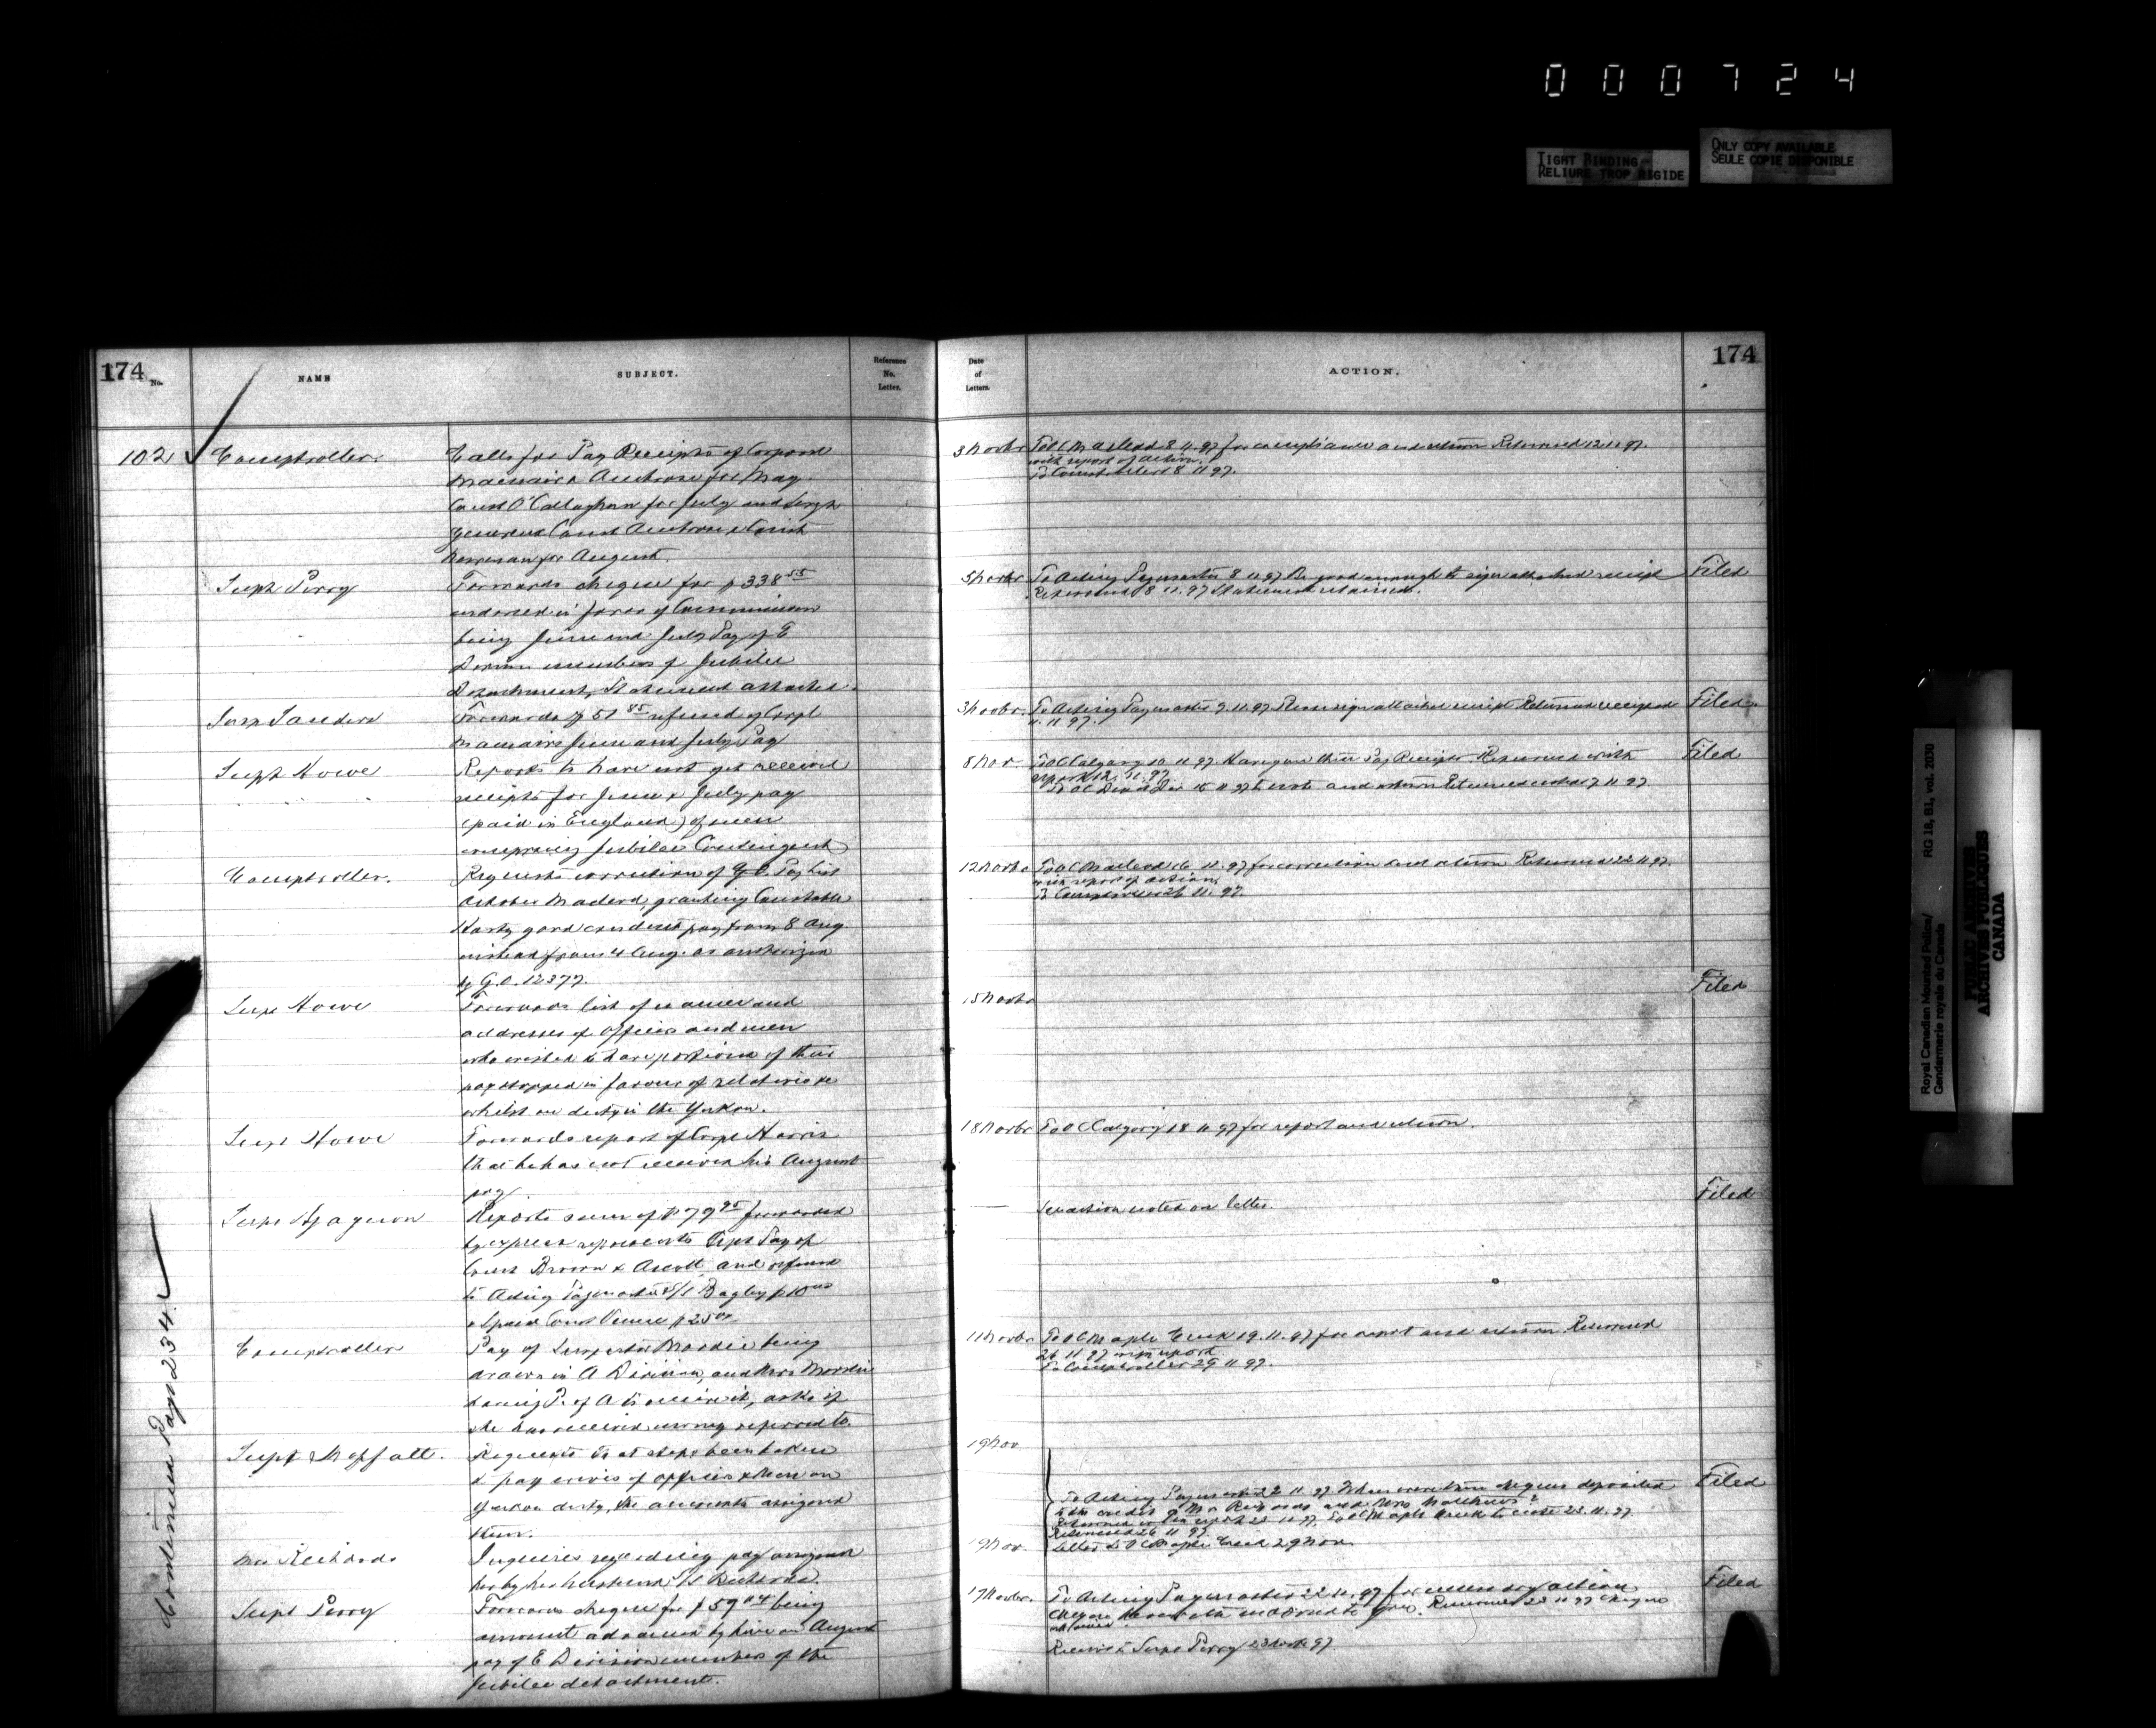 000724
TIGHT BINDING
RELIURE TROP RIGIDE
ONLY COPY AVAILABLE
SEULE COPIE DISPONIBLE
174 No.
NAME
SUBJECT.
Reference
No.
Letter.
102
Comptroller.
Calls for Pay Receipts of Corporal
Macnair & Ambrose for May
Const O'Callaghan for July and Sergt
Const Ambrose & Const
for August.
Supt Perry
Forwards cheque for $338 55
endorsed in favor of Commissioner
being June and July Pay of E
Division members of Jubilee
Detachment, Statement attached.
Supt Sanders
Forwards $51 85 refund of Corpl
Macnairs June and July Pay
Supt Howe
Reports to have not yet received
receipts for June & July pay
(paid in England) of men
comprising Jubilee Contingent
Comptroller.
Requests correction of G.C. Paylist
October Macleod, granting Constable
Hardy good conduct pay from 8 Aug
instead from 4 Aug. as authorized
by G.O. 12377.
Supt Howe
Forwards list of names and
addresses of officers and men
who wished to have portions of their
pay stopped in favour of relatives
whilst on duty in the Yukon.
Supt Howe
Forwards report of Corpl Harris
that he has not received his August
pay
Supt
Reports sum of $79 95 forwarded
by express represents Sept Pay of
Const Brown & and refund
to Acting Paymaster S/S Bagley $10 00
& Const $25 00
Comptroller
Pay of Inspector Moodie being
drawn in A Division, and Mrs Moodie
having P. of A to receive it, asks if
she has received money referred to.
Supt Moffatt.
Requests that steps be taken
to pay wives of officers & Men on
Yukon duty, the amounts assigned
them.
Mrs Richards
Inquires regarding pay assigned
her by her husband S/S Richards.
Supt Perry
Forwards cheque for $59 04 being
amount advanced by him on August
pay of E Division members of the
Jubilee detachment.
Continued Page 234
Date
of
Letters.
ACTION.
174
3 Novbr To OC Macleod 8 11 97 for compliance and return Returned 12 11 97
with report of action.
To Comptroller 8 11 97.
5 Novbr To Acting Paymaster 8 11 97 Be good enough to sign attached receipt Filed
Returned 8 11 97 Statement retained.
3 Novbr. To Acting Paymaster 9 11 97 Please sign attached receipt Returned receipted Filed
11 97.
8 Nov. To OC Calgary 10 11 97. Have you these Pay Receipts Returned with Filed
report 12 11 97
To OC Depot Div 15 11 97 to note and return Returned noted 17 11 97
12 Novbr To OC Macleod 16 11 97 for correction and return Returned 22 11 97.
with report of action.
To Comptroller 26 11 97.
15 Novbr
Filed
18 Novbr To OC Calgary 18 11 97 for report and return.
See action noted on letter.
Filed
11 Novbr To OC Maple Creek 19.11.97 for report and return. Returned
26 11 97 with report.
To Comptroller 29 11 97.
19 Nov
To Acting Paymaster 22 11 97 When were these cheques deposited Filed
to the credit of Mrs Richards and Mrs Matthews?
Returned with report 23 11 97. To OC Maple Creek to note 23.11.97
Returned 26 11 97
19 Nov. Letter to OC Maple Creek 29 Nov.
17 Novbr. To Acting Paymaster 22 11 97 for necessary action Filed
Cheque herewith Returned 23 11 97 Cheque
Receipt to Supt Perry 23 Nov 97
Royal Canadian Mounted Police/
Gendarmerie royale du Canada
RG 18, B1, vol. 2030
PUBLIC ARCHIVES
ARCHIVES PUBLIQUES
CANADA